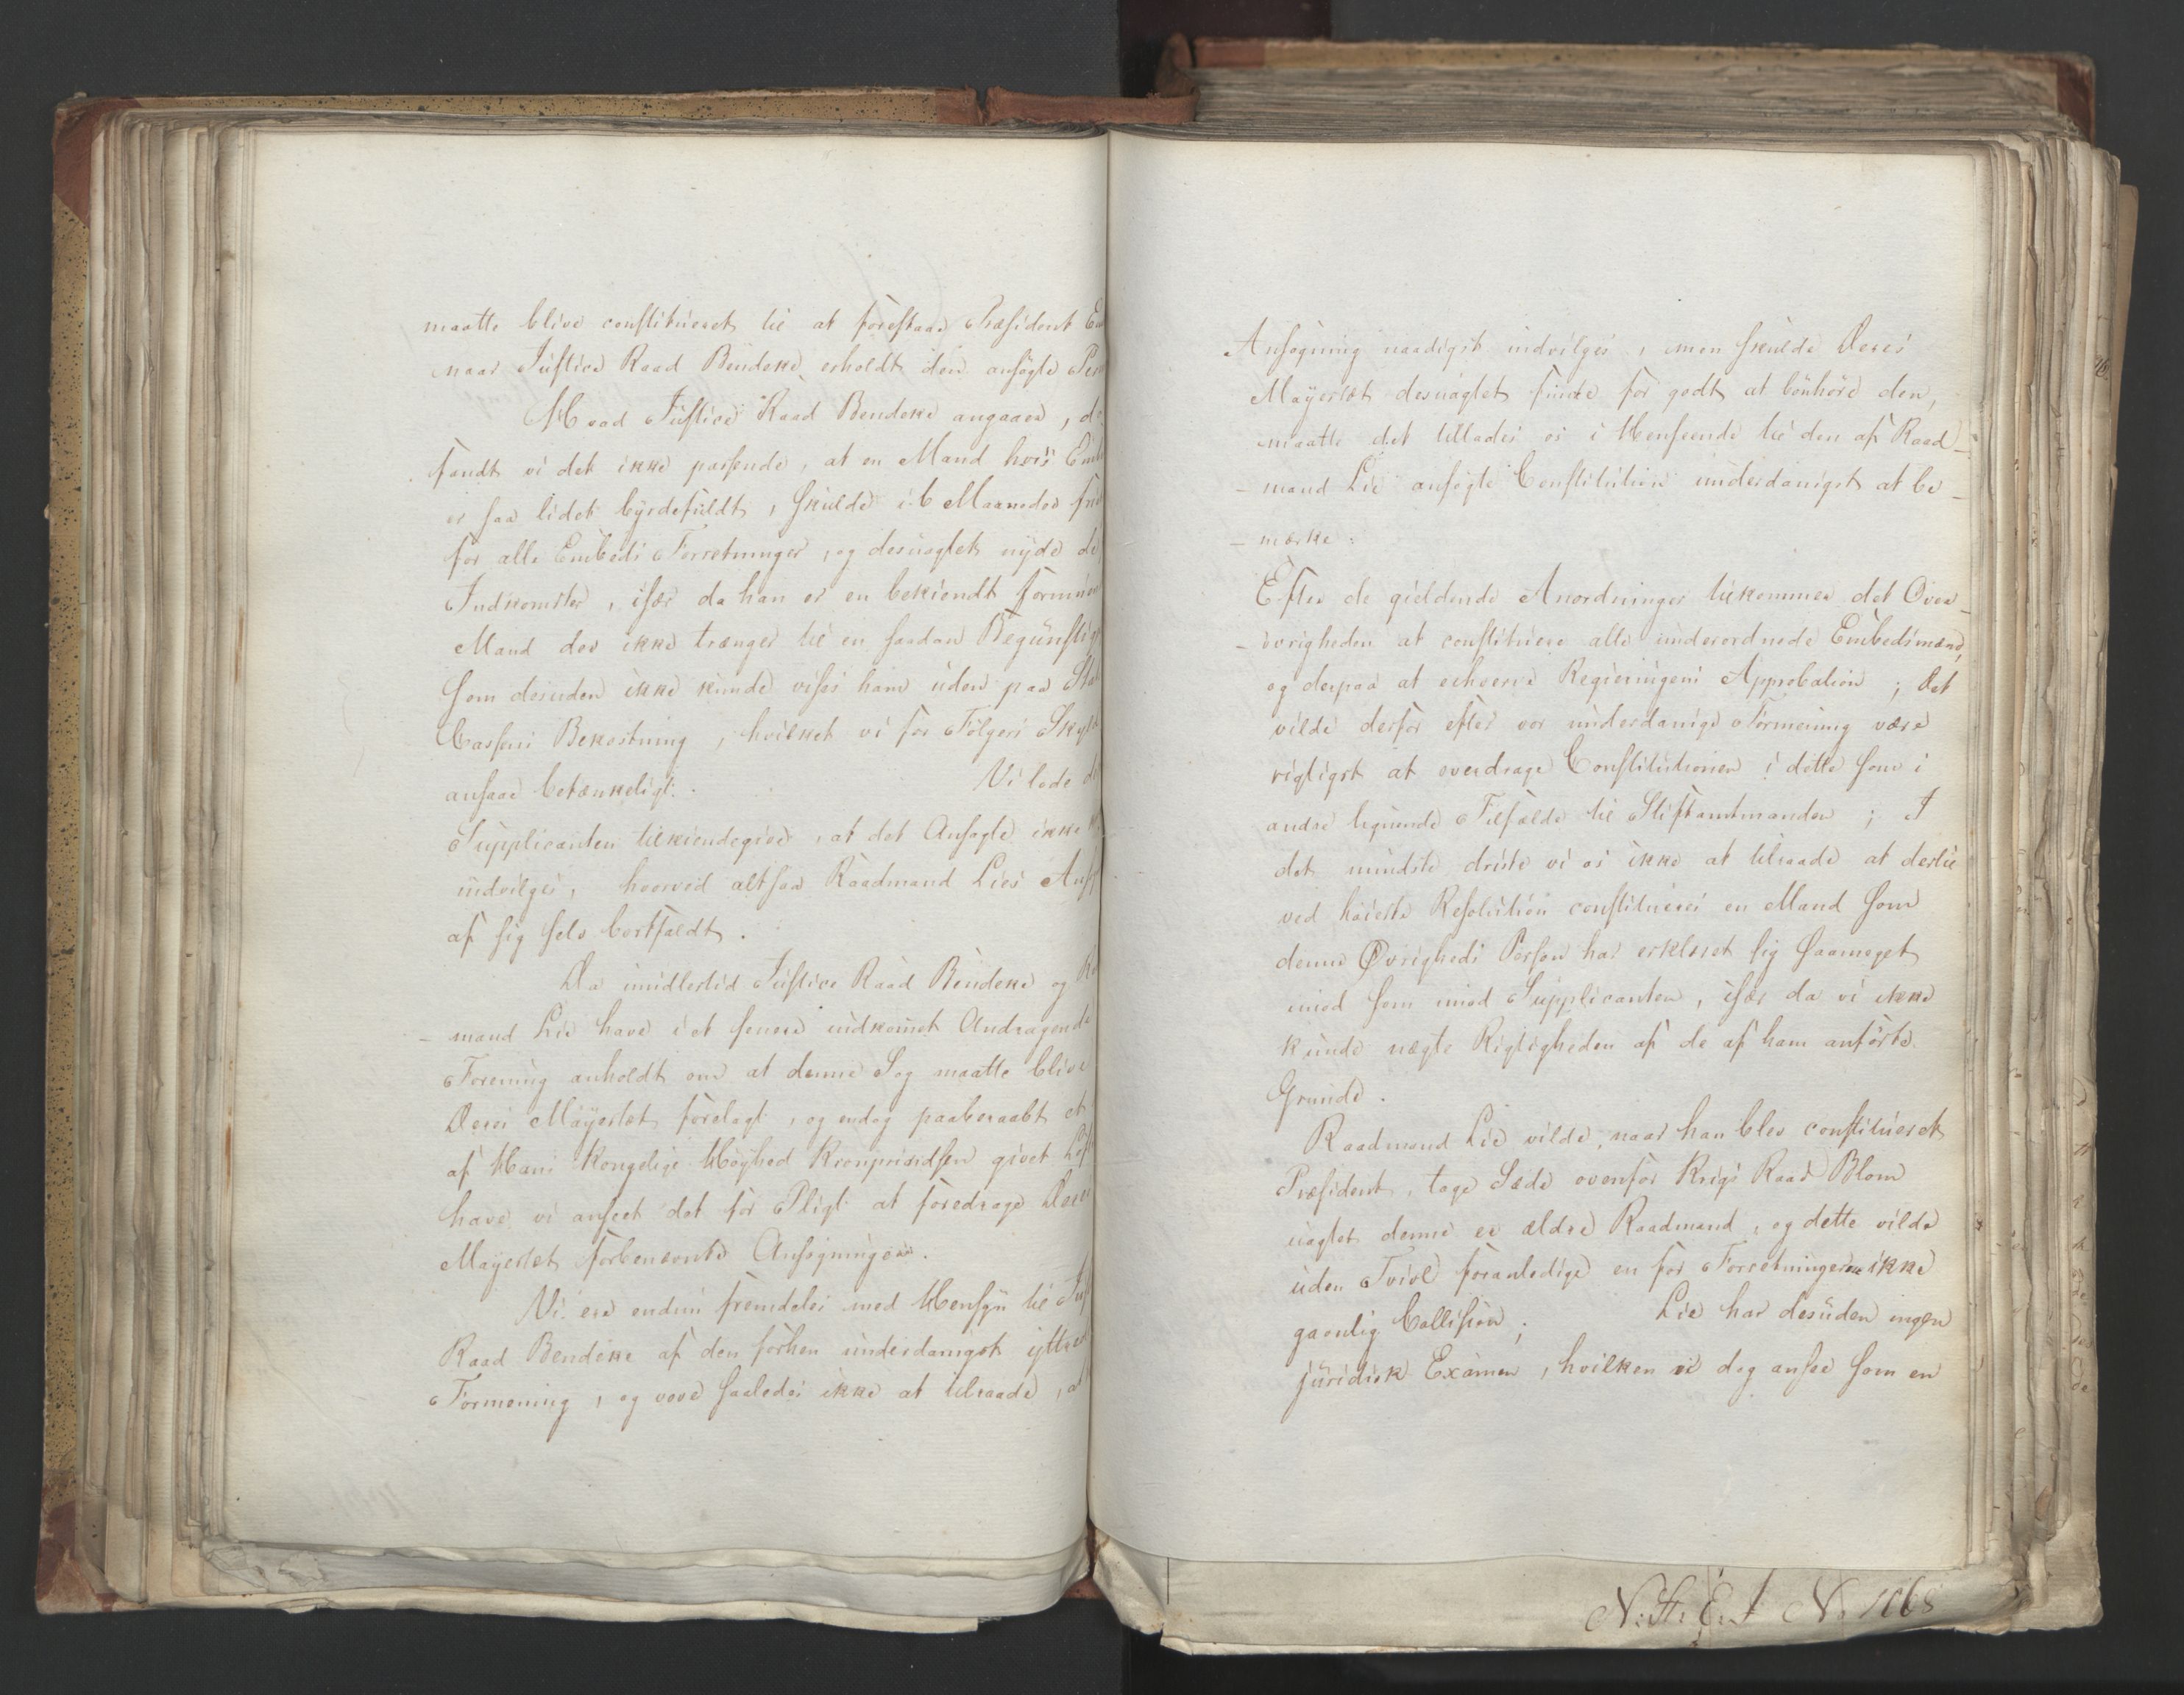 maatte blive constitueret til at forestaae Præsident
naar Justice Raad Bendeke erholdt den ansøgte
Hvad Justice Raad Bendeke angaaer,
fandt vi det ikke passende, at en Mand hvis
er saa lidet byrdefuldt, skulde i 6 Maaneder
for alle Embeds Forretninger, og desuagtet nyde
Indkomster, især da han er en bekiendt
Mand der ikke trænger til en saadan
som desuden ikke kunde vises ham uden paa
Cassens Bekostning, hvilket vi for Følgers
ansaae betænkeligt. Vi lode
Supplicanten tilkiendegive, at det Ansøgte ikke
indvilges, hvorved altsaa Raadmand Lies
af sig selv bortfaldt.
Da imidlertid Justice Raad Bendeke og
mand Lie have i et senere indkomet Andragende
Forening anholdt om at denne Sag maatte blive
Deres Mayestæt forelagt, og endog paaberaabt et
af Hans Kongelige Høyhed Kronprindsen givet
have vi anseet det for Pligt at foredrage Deres
Mayestæt forbenævnte Ansøgninger.
Vi ere endnu fremdeles med Hensyn til
Raad Bendeke af den forhen underdanigst
Formening, og vove saaledes ikke at tilraade,
Ansøgning naadigst indvilges, men skulde Deres
Mayestæt desuagtet finde for godt at bønhøre den,
maatte det tillades os i Henseende til den af Raad-
-mand Lie ansøgte Constitution underdanigst at be-
-mærke:
Efter de gieldende Anordninger tilkommer det Over-
-øvrigheden at constituere alle underordnede Embedsmænd,
og derpaa at erhverve Regieringens Approbation; Det
vilde derfor efter vor underdanige Formening være
rigtigst at overdrage Constitutionen i dette som i
andre lignende Tilfælde til Stiftamtmanden; I
det mindste driste vi os ikke at tilraade at dertil
ved høieste Resolution constitueres en Mand som
denne Øvrigheds Person har erklæret sig saameget
imod som imod Supplicanten, især da vi ikke
kunde nægte Rigtigheden af de af ham anførte
Grunde.
Raadmand Lie vilde, naar han blev constitueret
Præsident, tage Sæde ovenfor Krigs Raad Blom
uagtet denne er ældre Raadmand, og dette vilde
uden Tvivl foranledige en for Forretningerne ikke
gavnlig Collision; Lie har desuden ingen
juridisk Examen, hvilken vi dog ansee som en
N: St: E: J No 1068